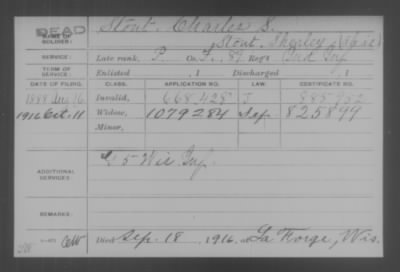 DEAD
NAME OF SOLDIER: Stout, Charles S.
Stout,
SERVICE: Late rank, P. Co. F, 89 Reg't Ind Inf
TERM OF SERVICE: Enlisted , 1 Discharged , 1
DATE OF FILING. CLASS. APPLICATION NO. LAW. CERTIFICATE NO.
1888 Invalid, 668.428 J
1916 Oct. 11 Widow, 1079284 Sep. 825899
Minor,
ADDITIONAL SERVICES: G 5 Wis Inf.
REMARKS:
Died Sep. 18, 1916, at La Farge, Wis.